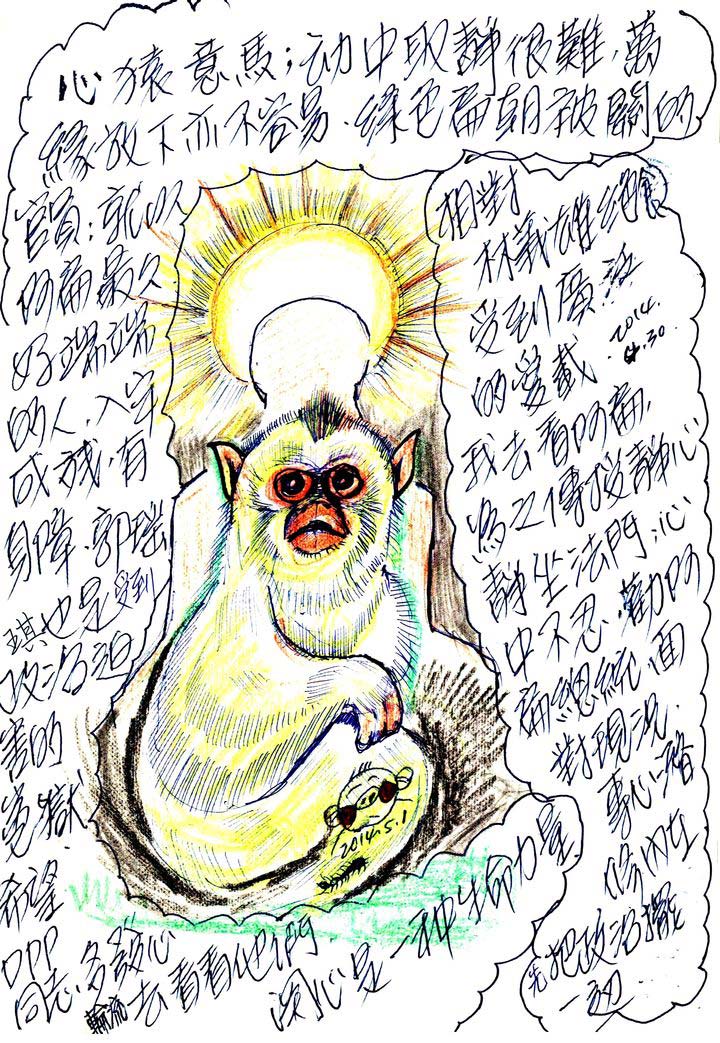 心猿意馬；动中取靜很難，萬
緣放下亦不容易．綠色扁朝被關的
官員；就以
阿扁最久
好端端
的人，入牢
成殘，有
身障．郭瑤
琪也是受到
政治迫
害的
冤獄
希望
DPP
同志，多發心
輪流去看看他們
深心是一种生命力量
相對
林義雄絕食
受到廣泛
的愛戴．2014.
4.30.
我去看阿扁，
為之傳授靜心
靜坐法門；心
中不忍．勸阿
扁總統，面
對現况．
專心潛
修內在
先把政治擺
一边
2014.5.1